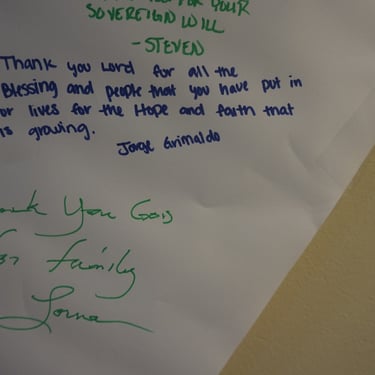 FOR YOUR
SOVEREIGN WILL
-STEVEN
Thank you Lord for all the
Blessing and people that you have put in
or lives for the Hope and faith that
is growing.
Jorge Grimaldo
You God
family
Lorna